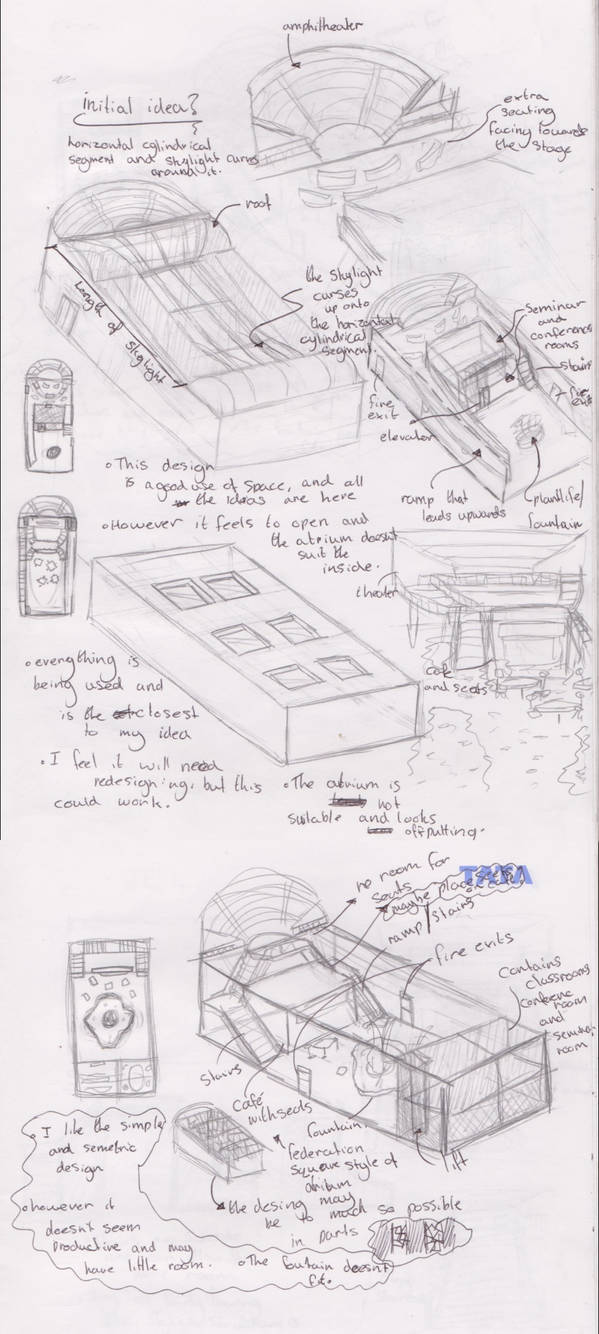 amphitheater
initial idea?
horizontal cylindrical
segment and skylight curves
around it.
extra
seating
facing towards
the stage
roof
Length of skylight
the skylight
curses
up onto
the horizontal
cylindrical
segment.
seminar
and
conference
rooms
stairs
fire exit
fire
exit
elevator
ramp that
leads upwards
plantlife/
fountain
• This design
is a good use of space, and all
the ideas are here
• However it feels to open and
the atrium doesn't
suit the
inside.
theater
cafe
and seats
• everything is
being used and
is the closest
to my idea
• I feel it will need
redesigning, but this
could work.
• The atrium is
not
suitable and looks
offputting.
no room for
seats
(maybe place seats)
TAFA
ramp/stairs
fire exits
Contains
classrooms
conference
room
and
seminar
room
stairs
café
with seats
fountain
federation
square style of
atrium
lift
the desing may
be to much so possible
in parts
• I like the simple
and semetric
design
• however it
doesn't seem
productive and may
have little room.
• The fountain doesn't
fit.